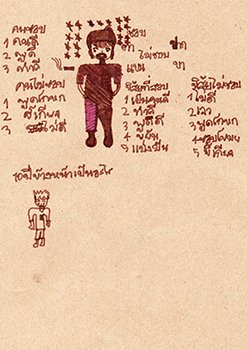 คนชอบ
1 คนดี
2 พูดดี
3 ทำดี
คนไม่ชอบ
1 พูดคำหยาบ
2 ขี้เกียจ
3 ไม่ดี
ชอบ
ไม่ชอบ
แขน
ขา
นิสัยที่ชอบ
1 เป็นคนดี
2 ทำดี
3 พูดดี
4 ขยัน
5 แบ่งปัน
นิสัยไม่ชอบ
1 ไม่ดี
2 เลว
3 พูดคำหยาบ
5 ขี้เกียจ
10ปีข้างหน้าเป็นอะไร